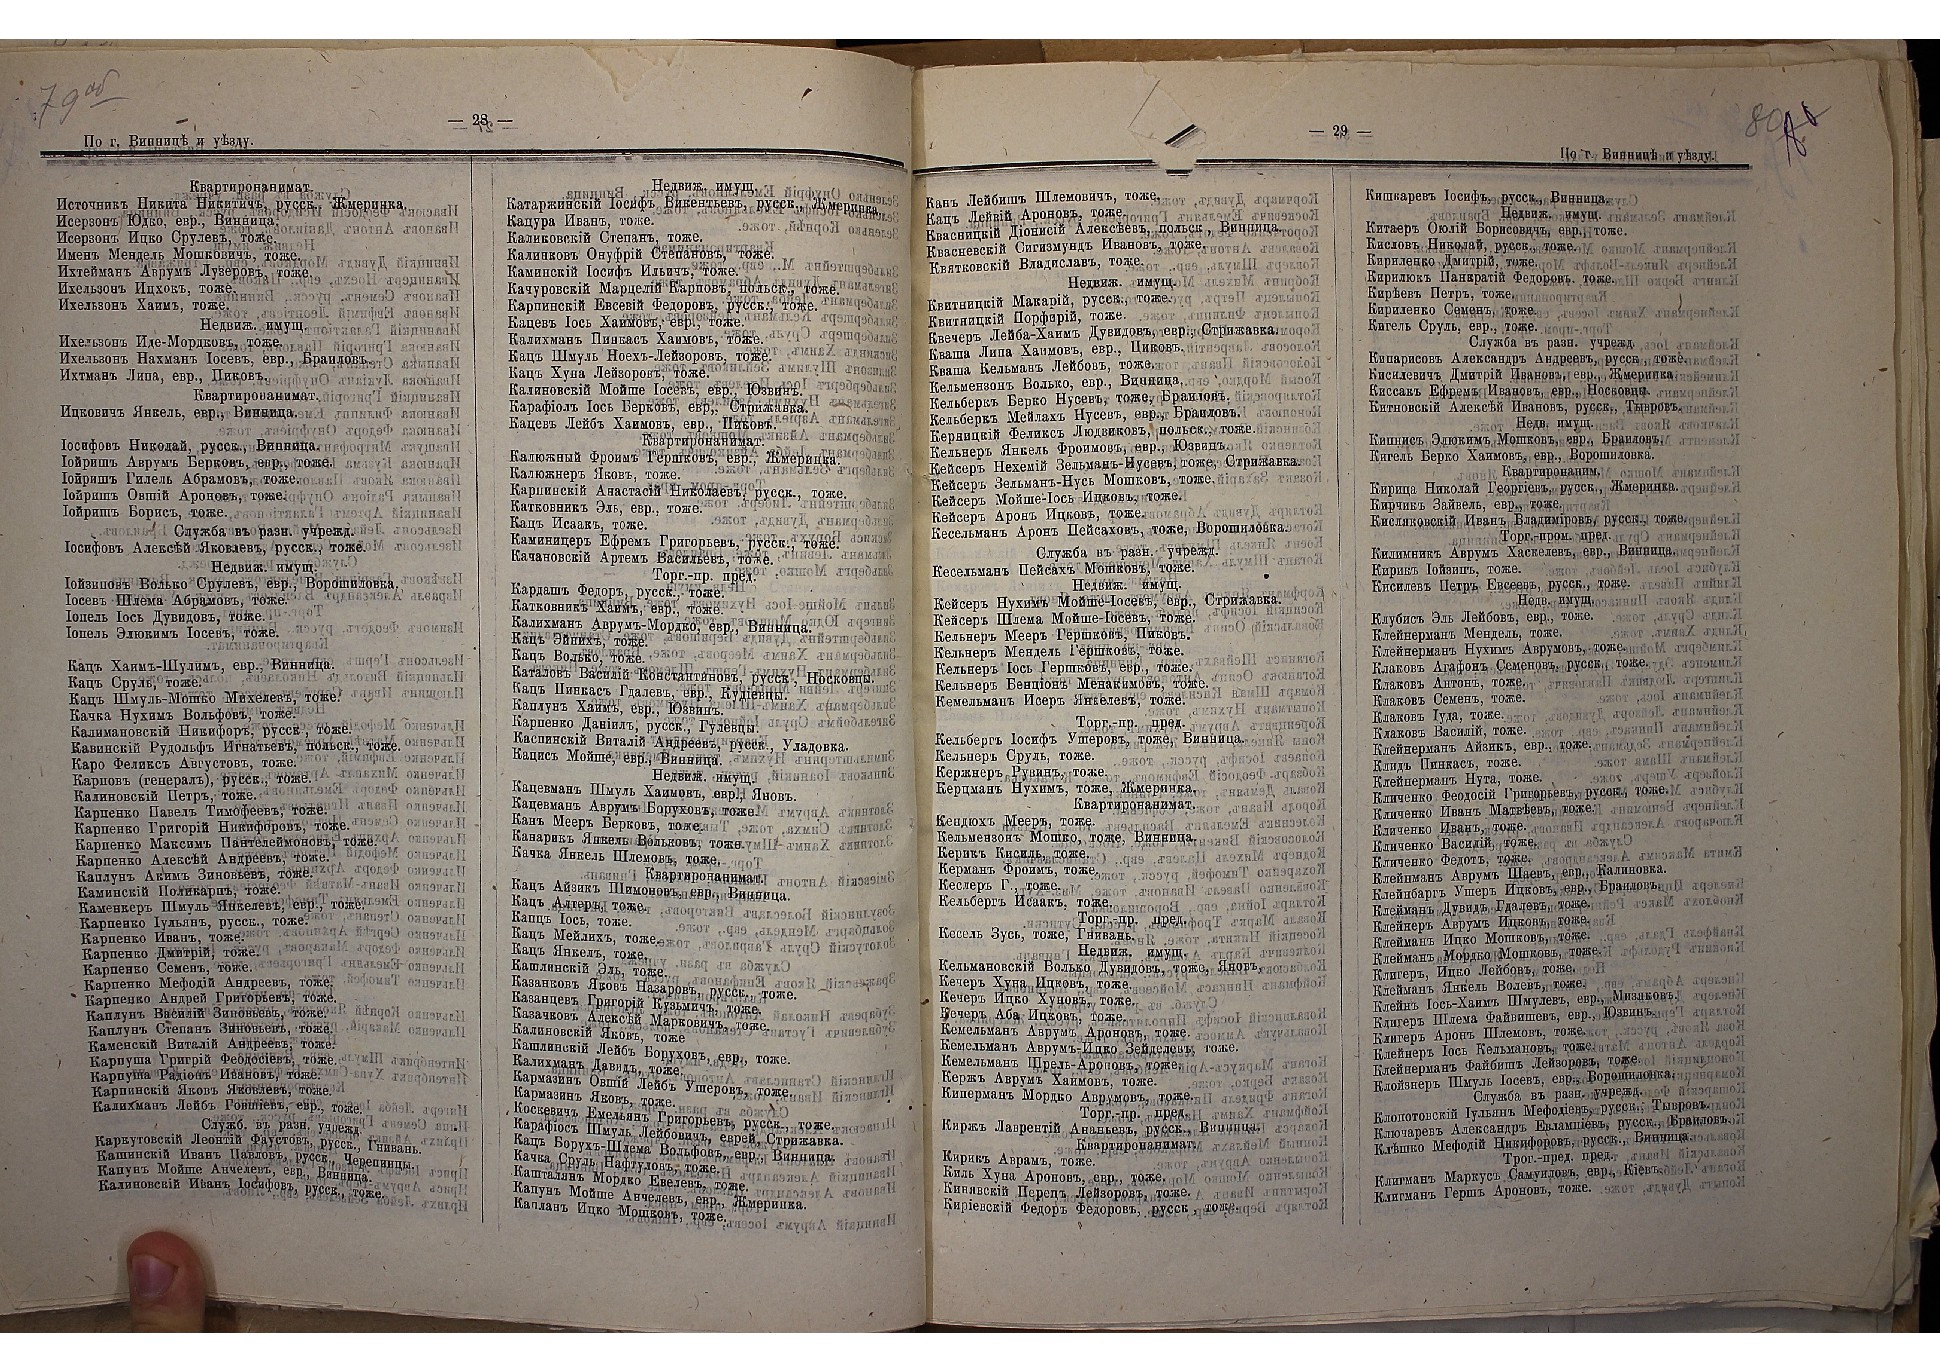 79 об
— 28 —
По г. Винницѣ и уѣзду.
Квартиронанимат.
Источникъ Никита Никитичъ, русск., Жмеринка.
Исерзонъ Юдко, евр., Винница.
Исерзонъ Ицко Срулев., тоже.
Именъ Мендель Мошковичъ, тоже.
Ихтейманъ Аврумъ Лузеровъ, тоже.
Ихельзонъ Ицхокъ, тоже.
Ихельзонъ Хаимъ, тоже.
Недвиж. имущ.
Ихельзонъ Иде-Мордковъ, тоже.
Ихельзонъ Нахманъ Іосевъ, евр., Браиловъ.
Ихтманъ Липа, евр., Пиковъ.
Квартиронанимат.
Ицковичъ Янкель, евр., Винница.
Іосифовъ Николай, русск., Винница.
Іойришъ Аврумъ Берковъ, евр., тоже.
Іойришъ Гилель Абрамовъ, тоже.
Іойришъ Овшій Ароновъ, тоже.
Іойришъ Борисъ, тоже.
Служба въ разн. учрежд.
Іосифовъ Алексѣй Яковлевъ, русск., тоже.
Недвиж. имущ.
Іойзиповъ Волько Срулевъ, евр., Ворошиловка.
Іосевъ Шлема Абрамовъ, тоже.
Іопель Іось Дувидовъ, тоже.
Іопель Элюкимъ Іосевъ, тоже.
Кацъ Хаимъ-Шулимъ, евр., Винница.
Кацъ Сруль, тоже.
Кацъ Шмуль-Мошко Михелевъ, тоже.
Качка Нухимъ Вольфовъ, тоже.
Калимановскій Никифоръ, русск., тоже.
Кавинскій Рудольфъ Игнатьевъ, польск., тоже.
Каро Феликсъ Августовъ, тоже.
Карповъ (генералъ), русск., тоже.
Калиновскій Петръ, тоже.
Карпенко Павелъ Тимофеевъ, тоже.
Карпенко Григорій Никифоровъ, тоже.
Карпенко Максимъ Пантелеймоновъ, тоже.
Карпенко Алексѣй Андреевъ, тоже.
Каплунъ Акимъ Зиновьевъ, тоже.
Каминскій Поликарпъ, тоже.
Каменкеръ Шмуль Янкелевъ, евр., тоже.
Карпенко Іульянъ, русск., тоже.
Карпенко Иванъ, тоже.
Карпенко Дмитрій, тоже.
Карпенко Семенъ, тоже.
Карпенко Мефодій Андреевъ, тоже.
Карпенко Андрей Григорьевъ, тоже.
Каплунъ Василій Зиновьевъ, тоже.
Каплунъ Степанъ Зиновьевъ, тоже.
Каменскій Виталій Андреевъ, тоже.
Карпуша Григрій Феодосіевъ, тоже.
Карпуша Радіонъ Ивановъ, тоже.
Карпинскій Яковъ Яковлевъ, тоже.
Калихманъ Лейбъ Говшіевъ, евр., тоже.
Служб. въ разн. учрежд.
Каркутовскій Леонтій Фаустовъ, русск., Гнивань.
Кашинскій Иванъ Павловъ, русск., Черепинцы.
Капунъ Мойше Анчелевъ, евр., Винница.
Калиновскій Иванъ Іосифовъ, русск., тоже.
Недвиж. имущ.
Катаржинскій Іосифъ Викентьевъ, русск., Жмеринка.
Кацура Иванъ, тоже.
Каликовскій Степанъ, тоже.
Калинковъ Онуфрій Степановъ, тоже.
Каминскій Іосифъ Ильичъ, тоже.
Качуровскій Марцелій Карповъ, польск., тоже.
Карпинскій Евсевій Федоровъ, русск., тоже.
Кацевъ Іось Хаимовъ, евр., тоже.
Калихманъ Пинкасъ Хаимовъ, тоже.
Кацъ Шмуль Ноехъ-Лейзоровъ, тоже.
Кацъ Хуна Лейзоровъ, тоже.
Калиновскій Мойше Іосевъ, евр., Юзвинъ.
Карафіолъ Іось Берковъ, евр., Стрижавка.
Кацевъ Лейбъ Хаимовъ, евр., Пиковъ.
Квартиронанимат.
Калюжный Фроимъ Гершковъ, евр., Жмеринка.
Калюжнеръ Яковъ, тоже.
Карпинскій Анастасій Николаевъ, русск., тоже.
Катковникъ Эль, евр., тоже.
Кацъ Исаакъ, тоже.
Каминицеръ Ефремъ Григорьевъ, русск., тоже.
Качановскій Артемъ Васильевъ, тоже.
Торг.-пр. пред.
Кардашъ Федоръ, русск., тоже.
Катковникъ Хаимъ, евр., тоже.
Калихманъ Аврумъ-Мордко, евр., Винница.
Кацъ Эйнихъ, тоже.
Кацъ Волько, тоже.
Каталовъ Василій Константиновъ, русск., Носковцы.
Кацъ Пинкасъ Гдалевъ, евр., Кудіевцы.
Каплунъ Хаимъ, евр., Юзвинъ.
Карпенко Даніилъ, русск., Гулевцы.
Каспинскій Виталій Андреевъ, русск., Уладовка.
Кацисъ Мойше, евр., Винница.
Недвиж. имущ.
Кацевманъ Шмуль Хаимовъ, евр., Яновъ.
Кацевманъ Аврумъ Боруховъ, тоже.
Канъ Мееръ Берковъ, тоже.
Канарикъ Янкель Вольковъ, тоже.
Качка Янкель Шлемовъ, тоже.
Квартиронанимат.
Кацъ Айзикъ Шимоновъ, евр., Винница.
Кацъ Алтеръ, тоже.
Капцъ Іось, тоже.
Кацъ Мейлихъ, тоже.
Кацъ Янкелъ, тоже.
Кашлинскій Эль, тоже.
Казанковъ Яковъ Назаровъ, русск., тоже.
Казанцевъ Григорій Кузьмичъ, тоже.
Казачковъ Алексѣй Марковичъ, тоже.
Калиновскій Яковъ, тоже
Кашлинскій Лейбъ Боруховъ, евр., тоже.
Калихманъ Давидъ, тоже.
Кармазинъ Овшій Лейбъ Ушеровъ, тоже.
Кармазинъ Яковъ, тоже.
Коскевичъ Емельянъ Григорьевъ, русск., тоже.
Карафіосъ Шмуль Лейбовичъ, еврей, Стрижавка.
Кацъ Борухъ-Шлема Вольфовъ, евр., Винница.
Качка Сруль Нафтуловъ, тоже.
Кашталянъ Мордко Евелевъ, тоже.
Капунъ Мойше Анчелевъ, евр., Жмеринка.
Капланъ Ицко Мошковъ, тоже.
— 29 —
80
По г. Винницѣ и уѣзду.
Канъ Лейбишъ Шлемовичъ, тоже.
Кацъ Лейвій Ароновъ, тоже.
Квасницкій Діонисій Алексѣевъ, польск., Винница.
Квасневскій Сигизмундъ Ивановъ, тоже.
Квятковскій Владиславъ, тоже.
Недвиж. имущ.
Квитницкій Макарій, русск., тоже.
Квитницкій Порфирій, тоже.
Квечеръ Лейба-Хаимъ Дувидовъ, евр., Стрижавка.
Кваша Липа Хаимовъ, евр., Пиковъ.
Кваша Кельманъ Лейбовъ, тоже.
Кельмензонъ Волько, евр., Винница.
Кельберкъ Берко Нусевъ, тоже, Браиловъ.
Кельберкъ Мейлахъ Нусевъ, евр., Браиловъ.
Керницкій Феликсъ Людвиковъ, польск., тоже.
Кельнеръ Янкель Фроимовъ, евр., Юзвинъ.
Кейсеръ Нехемій Зельманъ-Нусевъ, тоже, Стрижавка.
Кейсеръ Зельманъ-Нусь Мошковъ, тоже.
Кейсеръ Мойше-Іось Ицковъ, тоже.
Кейсеръ Аронъ Ицковъ, тоже.
Кесельманъ Аронъ Пейсаховъ, тоже, Ворошиловка.
Служба въ разн. учрежд.
Кесельманъ Пейсахъ Мошковъ, тоже.
Недвиж. имущ.
Кейсеръ Нухимъ Мойше-Іосевъ, евр., Стрижавка.
Кейсеръ Шлема Мойше-Іосевъ, тоже.
Кельнеръ Мееръ Гершковъ, Пиковъ.
Кельнеръ Мендель Гершковъ, тоже.
Кельнеръ Іось Гершковъ, евр., тоже.
Кельнеръ Бенціонъ Менакимовъ, тоже.
Кемельманъ Исеръ Янкелевъ, тоже.
Торг.-пр. пред.
Кельбергъ Іосифъ Ушеровъ, тоже, Винница.
Кельнеръ Сруль, тоже.
Кержнеръ Рувинъ, тоже.
Керцманъ Нухимъ, тоже, Жмеринка.
Квартиронанимат.
Кендюхъ Мееръ, тоже.
Кельмензонъ Мошко, тоже, Винница.
Керикъ Кисиль, тоже.
Керманъ Фроимъ, тоже.
Кеслеръ Г., тоже.
Кельбергъ Исаакъ, тоже.
Торг.-пр. пред.
Кесель Зусь, тоже, Гнивань.
Недвиж. имущ.
Кельмановскій Волько Дувидовъ, тоже, Яновъ.
Кечеръ Хуна Ицковъ, тоже.
Кечеръ Ицко Хуновъ, тоже.
Кечеръ Аба Ицковъ, тоже.
Кемельманъ Аврумъ Ароновъ, тоже.
Кемельманъ Аврумъ-Ицко Зейделевъ, тоже.
Кемельманъ Шрель-Ароновъ, тоже.
Кержъ Аврумъ Хаимовъ, тоже.
Киперманъ Мордко Аврумовъ, тоже.
Торг.-пр. пред.
Киржъ Лаврентій Ананьевъ, русск., Винница.
Квартиронанимат.
Кирикъ Аврамъ, тоже.
Киль Хуна Ароновъ, евр., тоже.
Кинявскій Перецъ Лейзоровъ, тоже.
Киріевскій Федоръ Федоровъ, русск., тоже.
Кишкаревъ Іосифъ, русск., Винница.
Недвиж. имущ.
Китаеръ Оюлій Борисовичъ, евр., тоже.
Кисловъ Николай, русск., тоже.
Кириленко Дмитрій, тоже.
Кирилюкъ Панкратій Федоровъ, тоже.
Кирѣевъ Петръ, тоже.
Кириленко Семенъ, тоже.
Кигель Сруль, евр., тоже.
Служба въ разн. учрежд.
Кипарисовъ Александръ Андреевъ, русск., тоже.
Кисилевичъ Дмитрій Ивановъ, евр., Жмеринка.
Киссакъ Ефремъ Ивановъ, евр., Носковцы.
Китновскій Алексѣй Ивановъ, русск., Тывровъ.
Недв. имущ.
Кипнисъ Элюкимъ Мошковъ, евр., Браиловъ.
Кигель Берко Хаимовъ, евр., Ворошиловка.
Квартиронаним.
Кирица Николай Георгіевъ, русск., Жмеринка.
Кирчикъ Зайвель, евр., тоже.
Кисляковскій Иванъ Владиміровъ, русск., тоже.
Торг.-пром. пред.
Килимникъ Аврумъ Хаскелевъ, евр., Винница.
Кирикъ Іойзипъ, тоже.
Кисилевъ Петръ Евсеевъ, русск., тоже.
Недв. имущ.
Клубисъ Эль Лейбовъ, евр., тоже.
Клейнерманъ Мендель, тоже.
Клейнерманъ Нухимъ Аврумовъ, тоже.
Клаковъ Агафонъ Семеновъ, русск., тоже.
Клаковъ Антонъ, тоже.
Клаковъ Семенъ, тоже.
Клаковъ Іуда, тоже.
Клаковъ Василій, тоже.
Клейнерманъ Айзикъ, евр., тоже.
Клидъ Пинкасъ, тоже.
Клейнерманъ Нута, тоже.
Кличенко Феодосій Григорьевъ, русск., тоже.
Кличенко Иванъ Матвѣевъ, тоже.
Кличенко Иванъ, тоже.
Кличенко Василій, тоже.
Кличенко Федотъ, тоже.
Клейнманъ Аврумъ Шаевъ, евр., Калиновка.
Клейнбаргъ Ушеръ Ицковъ, евр., Браиловъ.
Клейманъ Дувидъ Гдалевъ, тоже.
Клейнеръ Аврумъ Ицковъ, тоже.
Клейманъ Ицко Мошковъ, тоже.
Клейманъ Мордко Мошковъ, тоже.
Клигеръ, Ицко Лейбовъ, тоже.
Клейманъ Янкель Волевъ, тоже.
Клейнъ Іось-Хаимъ Шмулевъ, евр., Мизяковъ.
Клигеръ Шлема Файвишевъ, евр., Юзвинъ.
Клигеръ Аронъ Шлемовъ, тоже.
Клейнеръ Іось Кельмановъ, тоже.
Клейнерманъ Файбишъ Лейзоровъ, тоже.
Клойзнеръ Шмуль Іосевъ, евр., Ворошиловка.
Служба въ разн. учрежд.
Клопотовскій Іульянъ Мефодіевъ, русск., Тывровъ.
Ключаревъ Александръ Евлампіевъ, русск., Браиловъ.
Клѣшко Мефодій Никифоровъ, русск., Винница.
Трог.-пред. пред.
Клигманъ Маркусъ Самуиловъ, евр., Кіевъ.
Клигманъ Гершъ Ароновъ, тоже.